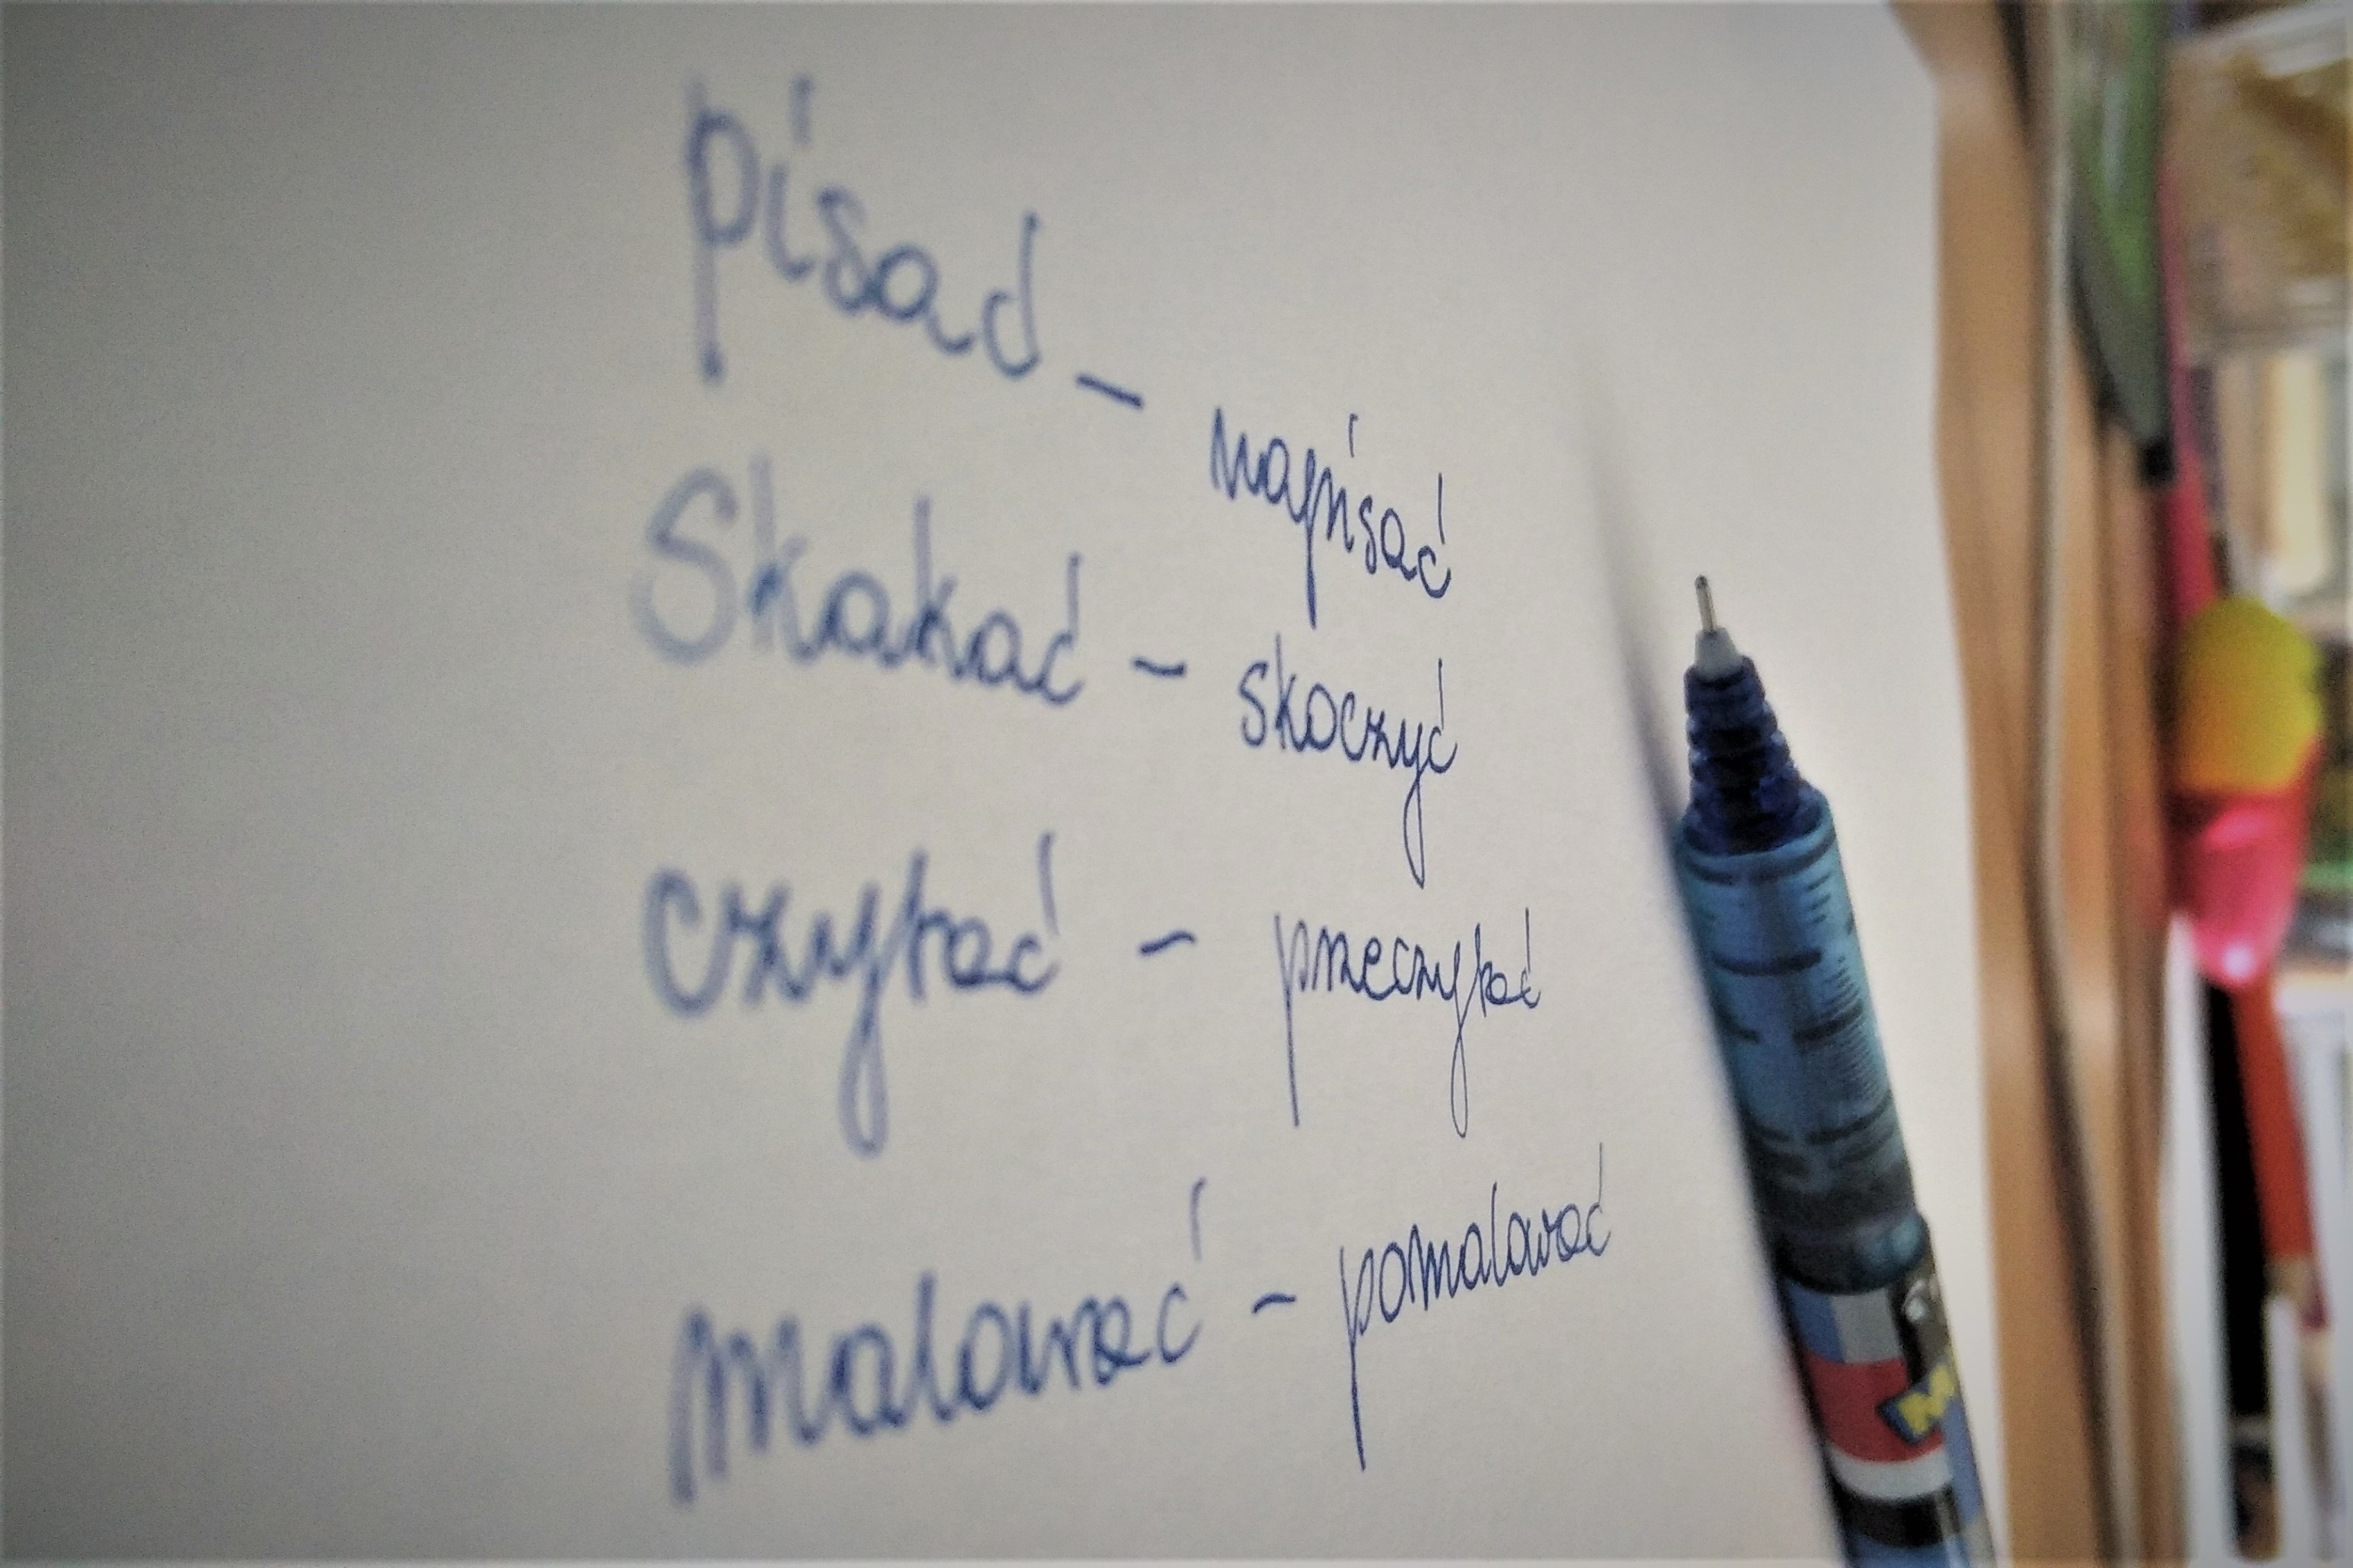 pisać - napisać
Skakać - skoczyć
czytać - przeczytać
malować - pomalować